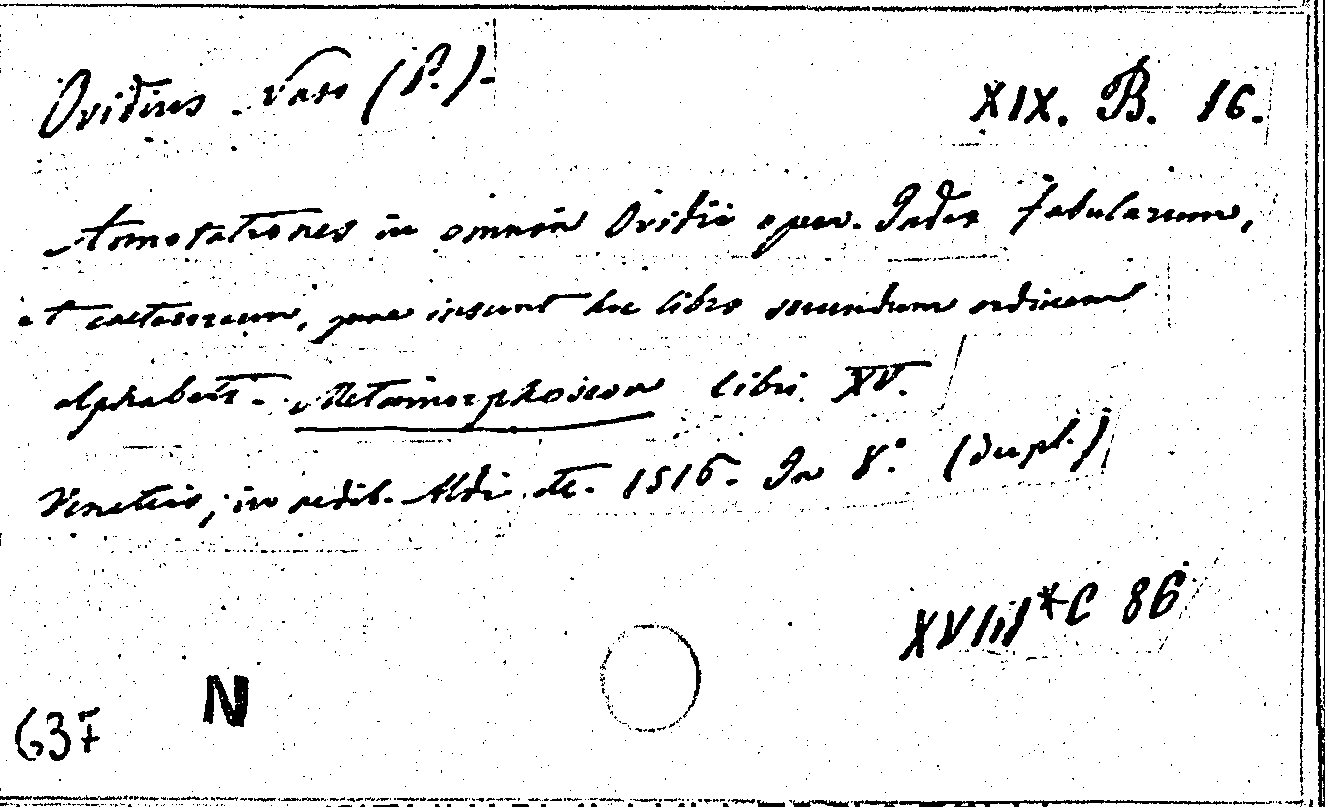 Ovidius Naso (P.)-
XIX. B. 16.
Annotationes in omnia Ovidii opera. Index fabularum,
et caeterorum, quae insunt hoc libro secundum ordinem
alphabeti - Metamorphoseon libri XV.
Venetiis, in aedib. Aldi etc. 1516. In 8.° (dupl.)
XVIII*C 86
N
637